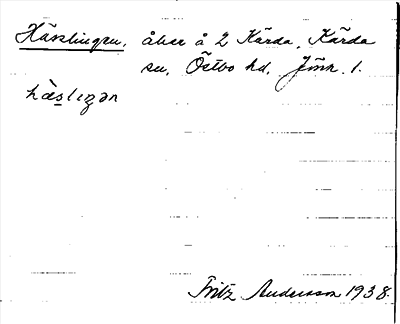 Hässlingen, åker å 2 Kärda, Kärda
sn, Östbo hd, Jönk. l.
hæslıŋən
Fritz Andersson 1938.